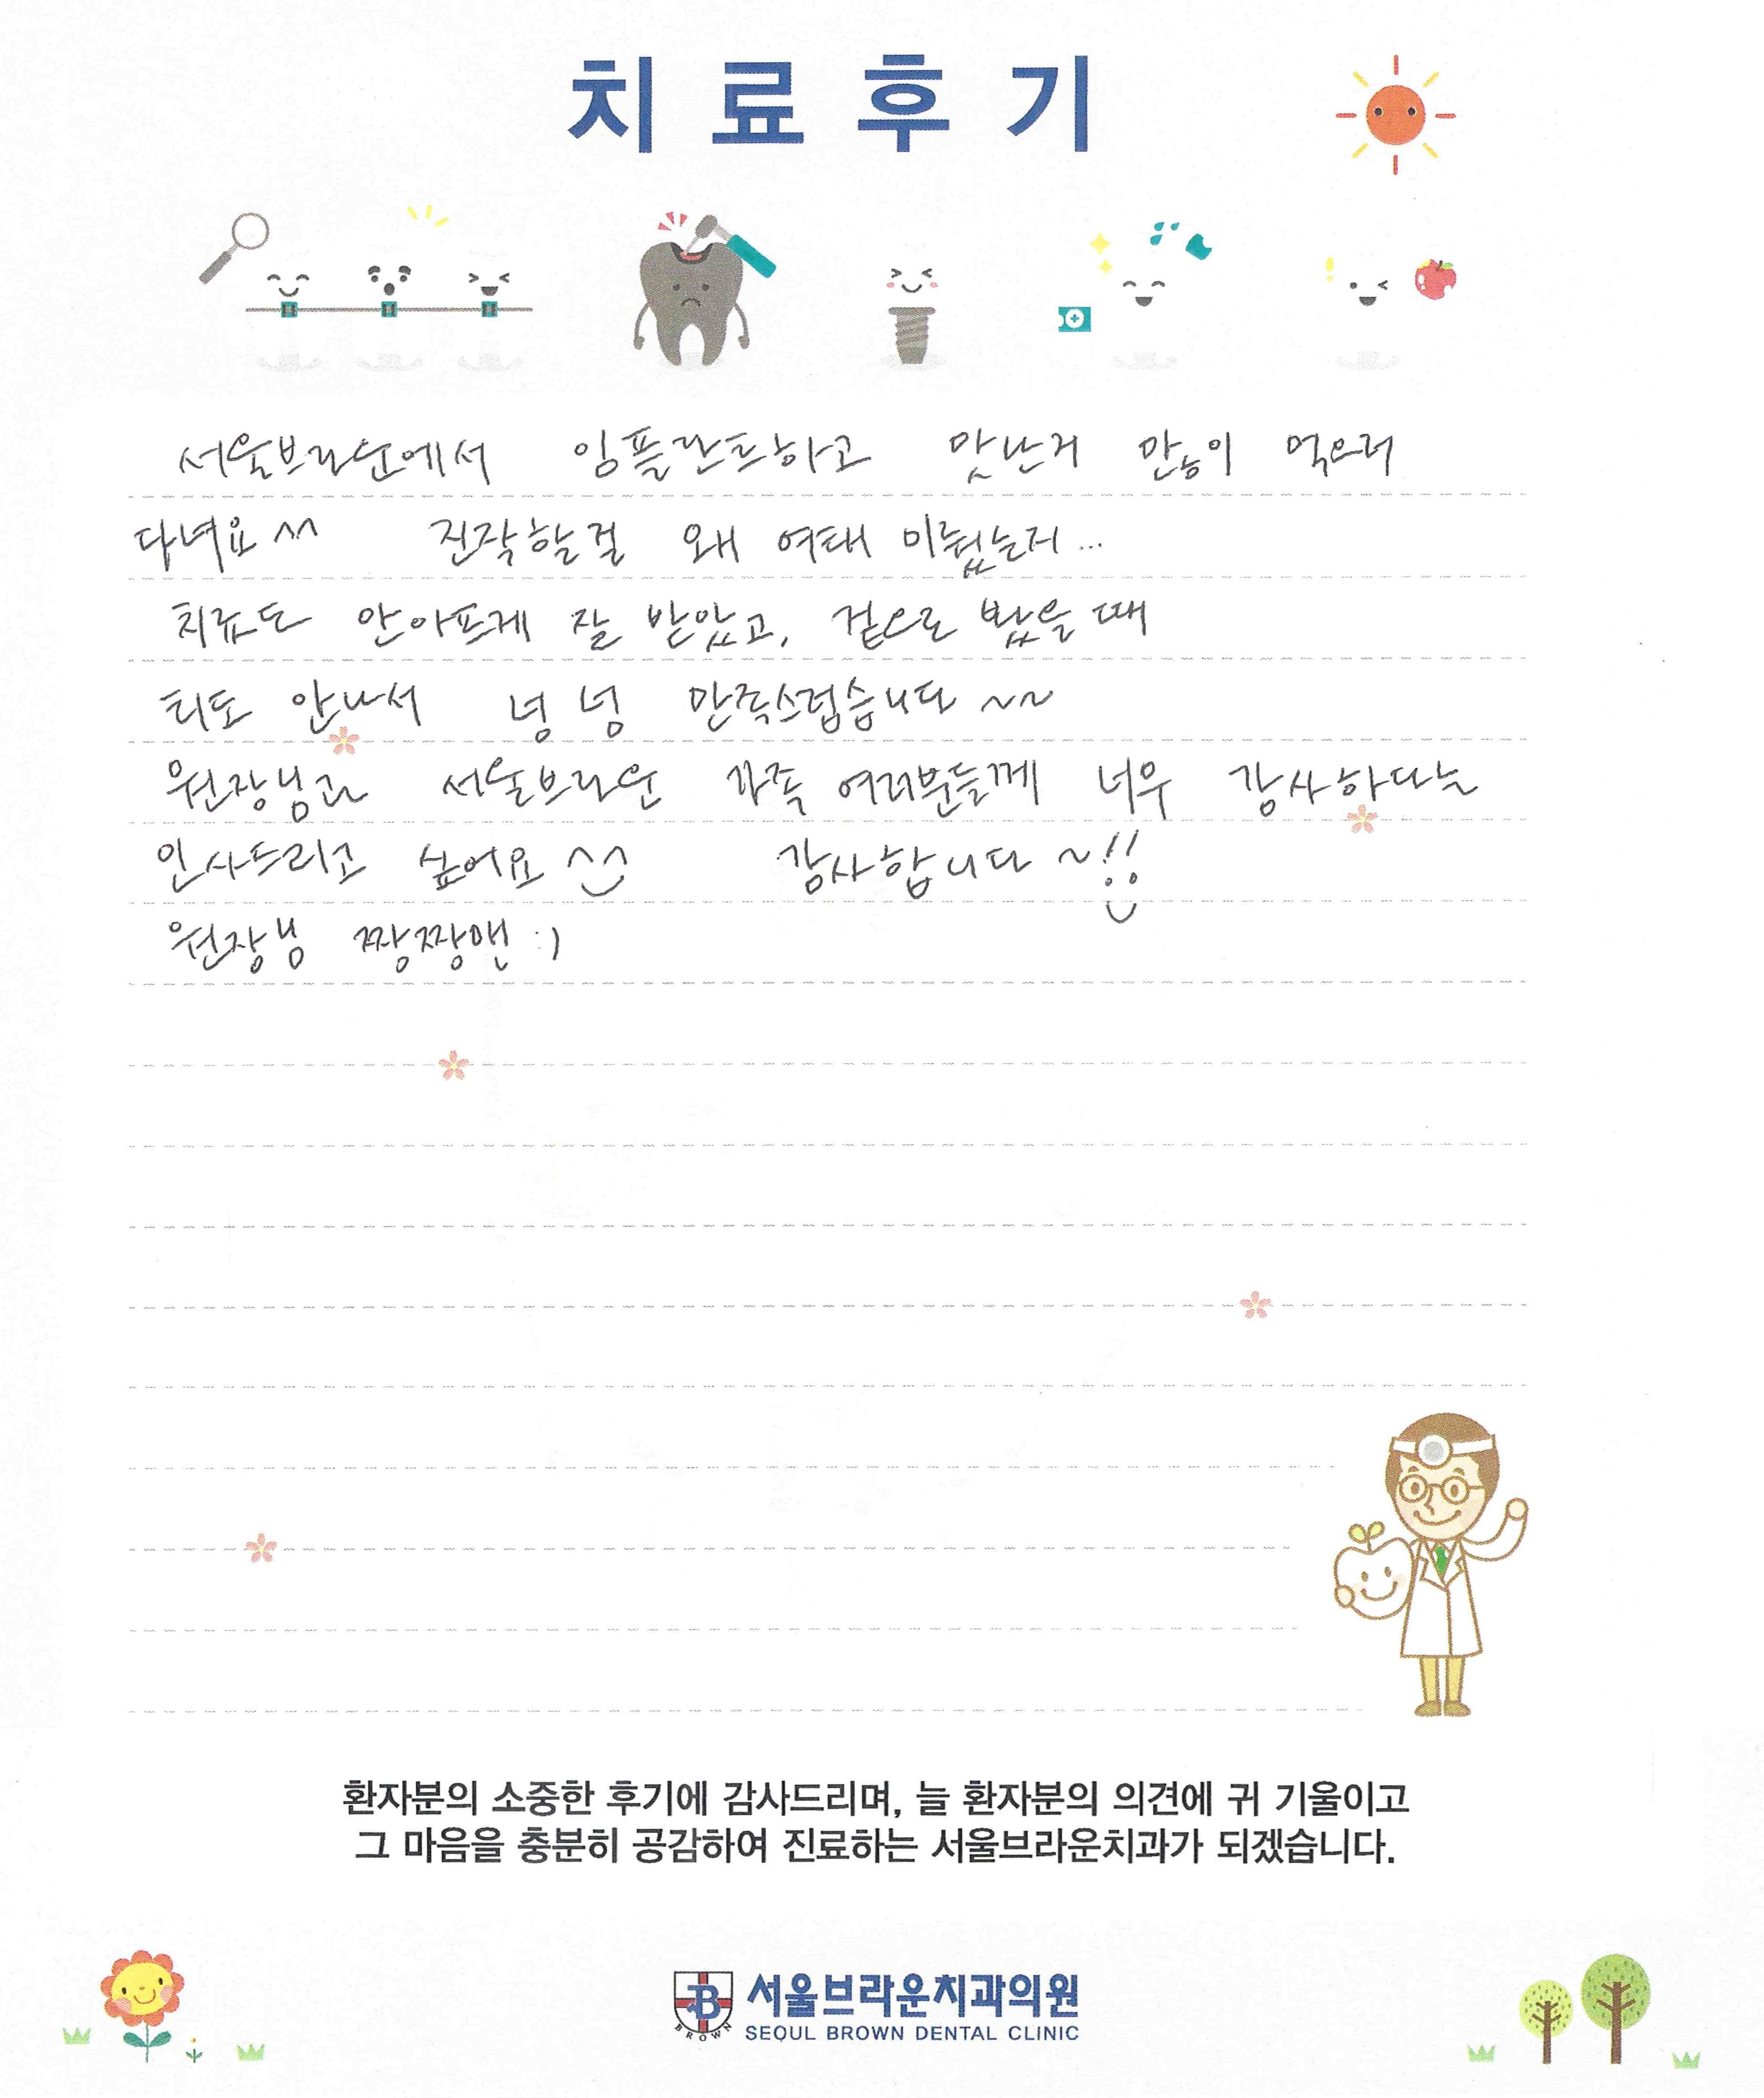 치료후기
서울브라운에서 임플란트하고 맛난거 만능이 먹으러
다녀요 ^^ 진작할걸 왜 여태 미뤘는지...
치료도 안아프게 잘 받았고, 겉으로 봤을 때
티도 안나서 넝 넝 만족스럽습니다 ~~
원장님과 서울브라운 가족 여러분들께 너무 감사하다는
인사드리고 싶어요 ^^ 감사합니다 ~!!
원장님 짱짱맨 :)
환자분의 소중한 후기에 감사드리며, 늘 환자분의 의견에 귀 기울이고
그 마음을 충분히 공감하여 진료하는 서울브라운치과가 되겠습니다.
B BROWN 서울브라운치과의원
SEOUL BROWN DENTAL CLINIC